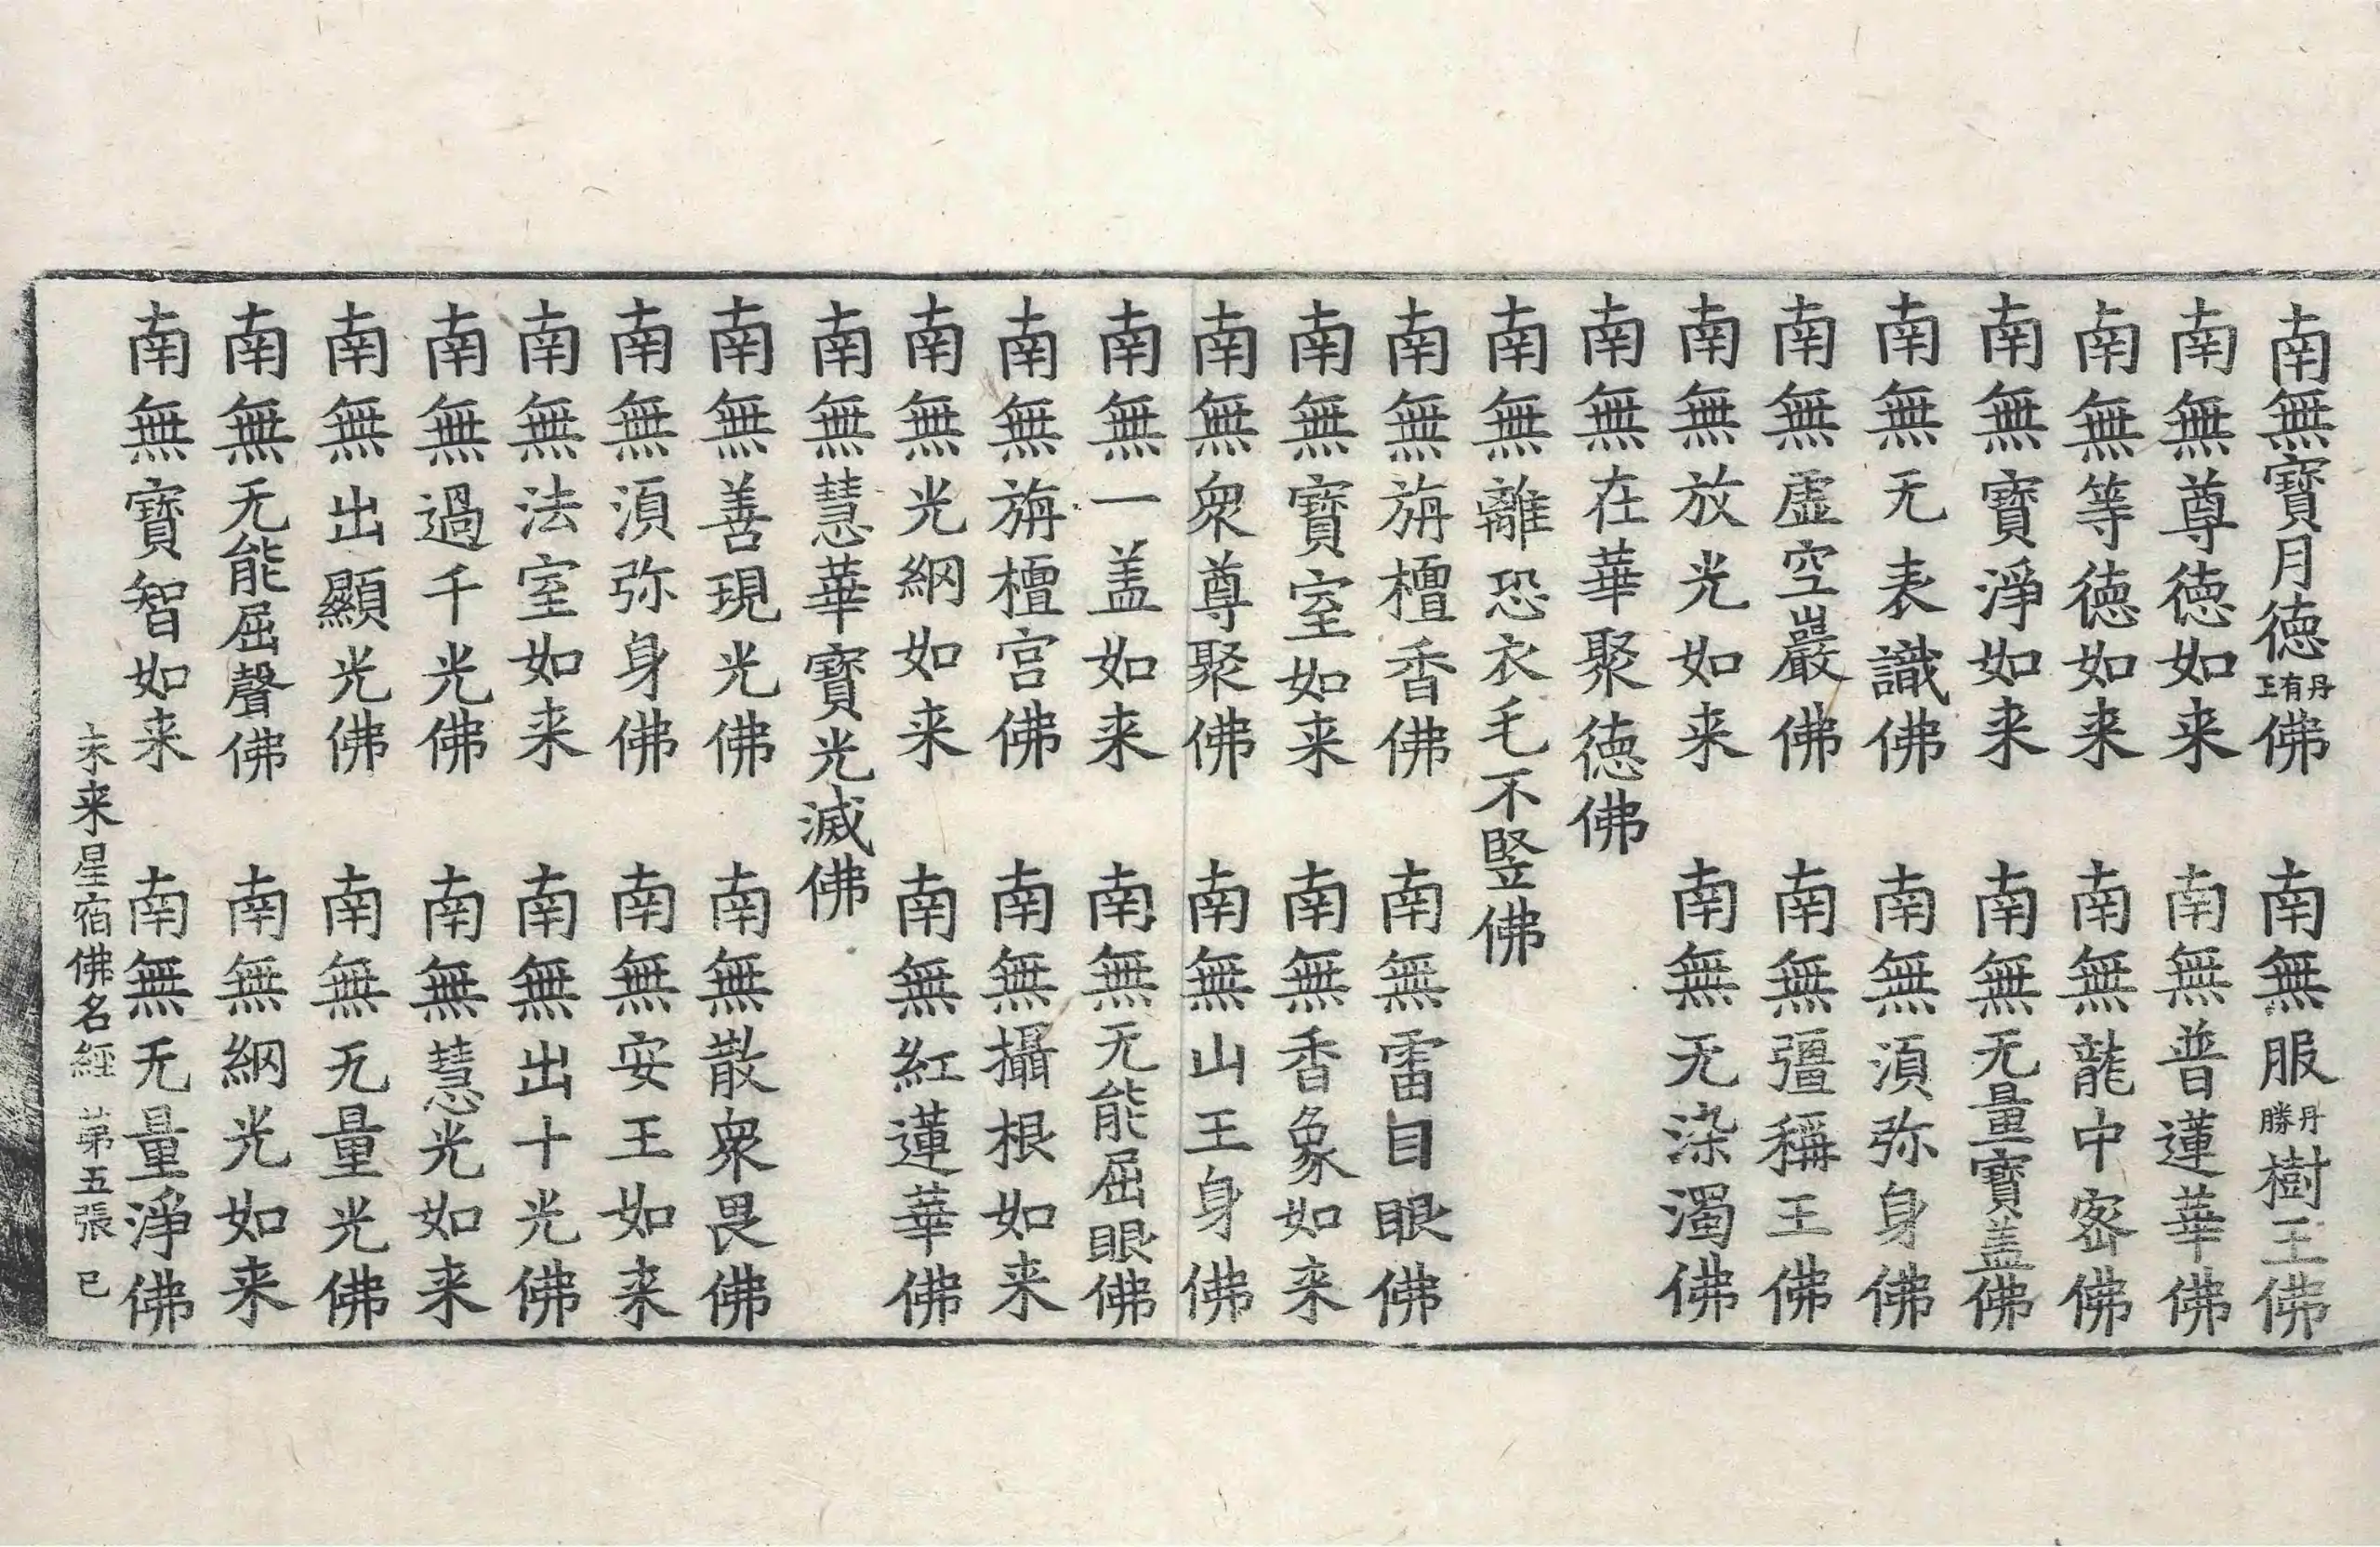 南無寶月德丹有王佛　南無服丹勝樹王佛
南無尊德如来　南無普蓮華佛
南無等德如来　南無龍中密佛
南無寶淨如来　南無无量寶盖佛
南無无表識佛　南無湏弥身佛
南無虛空巖佛　南無彊稱王佛
南無放光如来　南無无染濁佛
南無在華聚德佛
南無離恐衣毛不竪佛
南無旃檀香佛　南無雷目眼佛
南無寶室如来　南無香象如来
南無衆尊聚佛　南無山王身佛
南無一盖如来　南無无能屈眼佛
南無旃檀宫佛　南無攝根如来
南無光網如来　南無紅蓮華佛
南無慧華寶光滅佛
南無善現光佛　南無散衆畏佛
南無湏弥身佛　南無安王如来
南無法室如来　南無出十光佛
南無過千光佛　南無慧光如来
南無出顯光佛　南無无量光佛
南無无能屈聲佛　南無網光如来
南無寶智如来　南無无量淨佛
未来星宿佛名經　苐五張　已